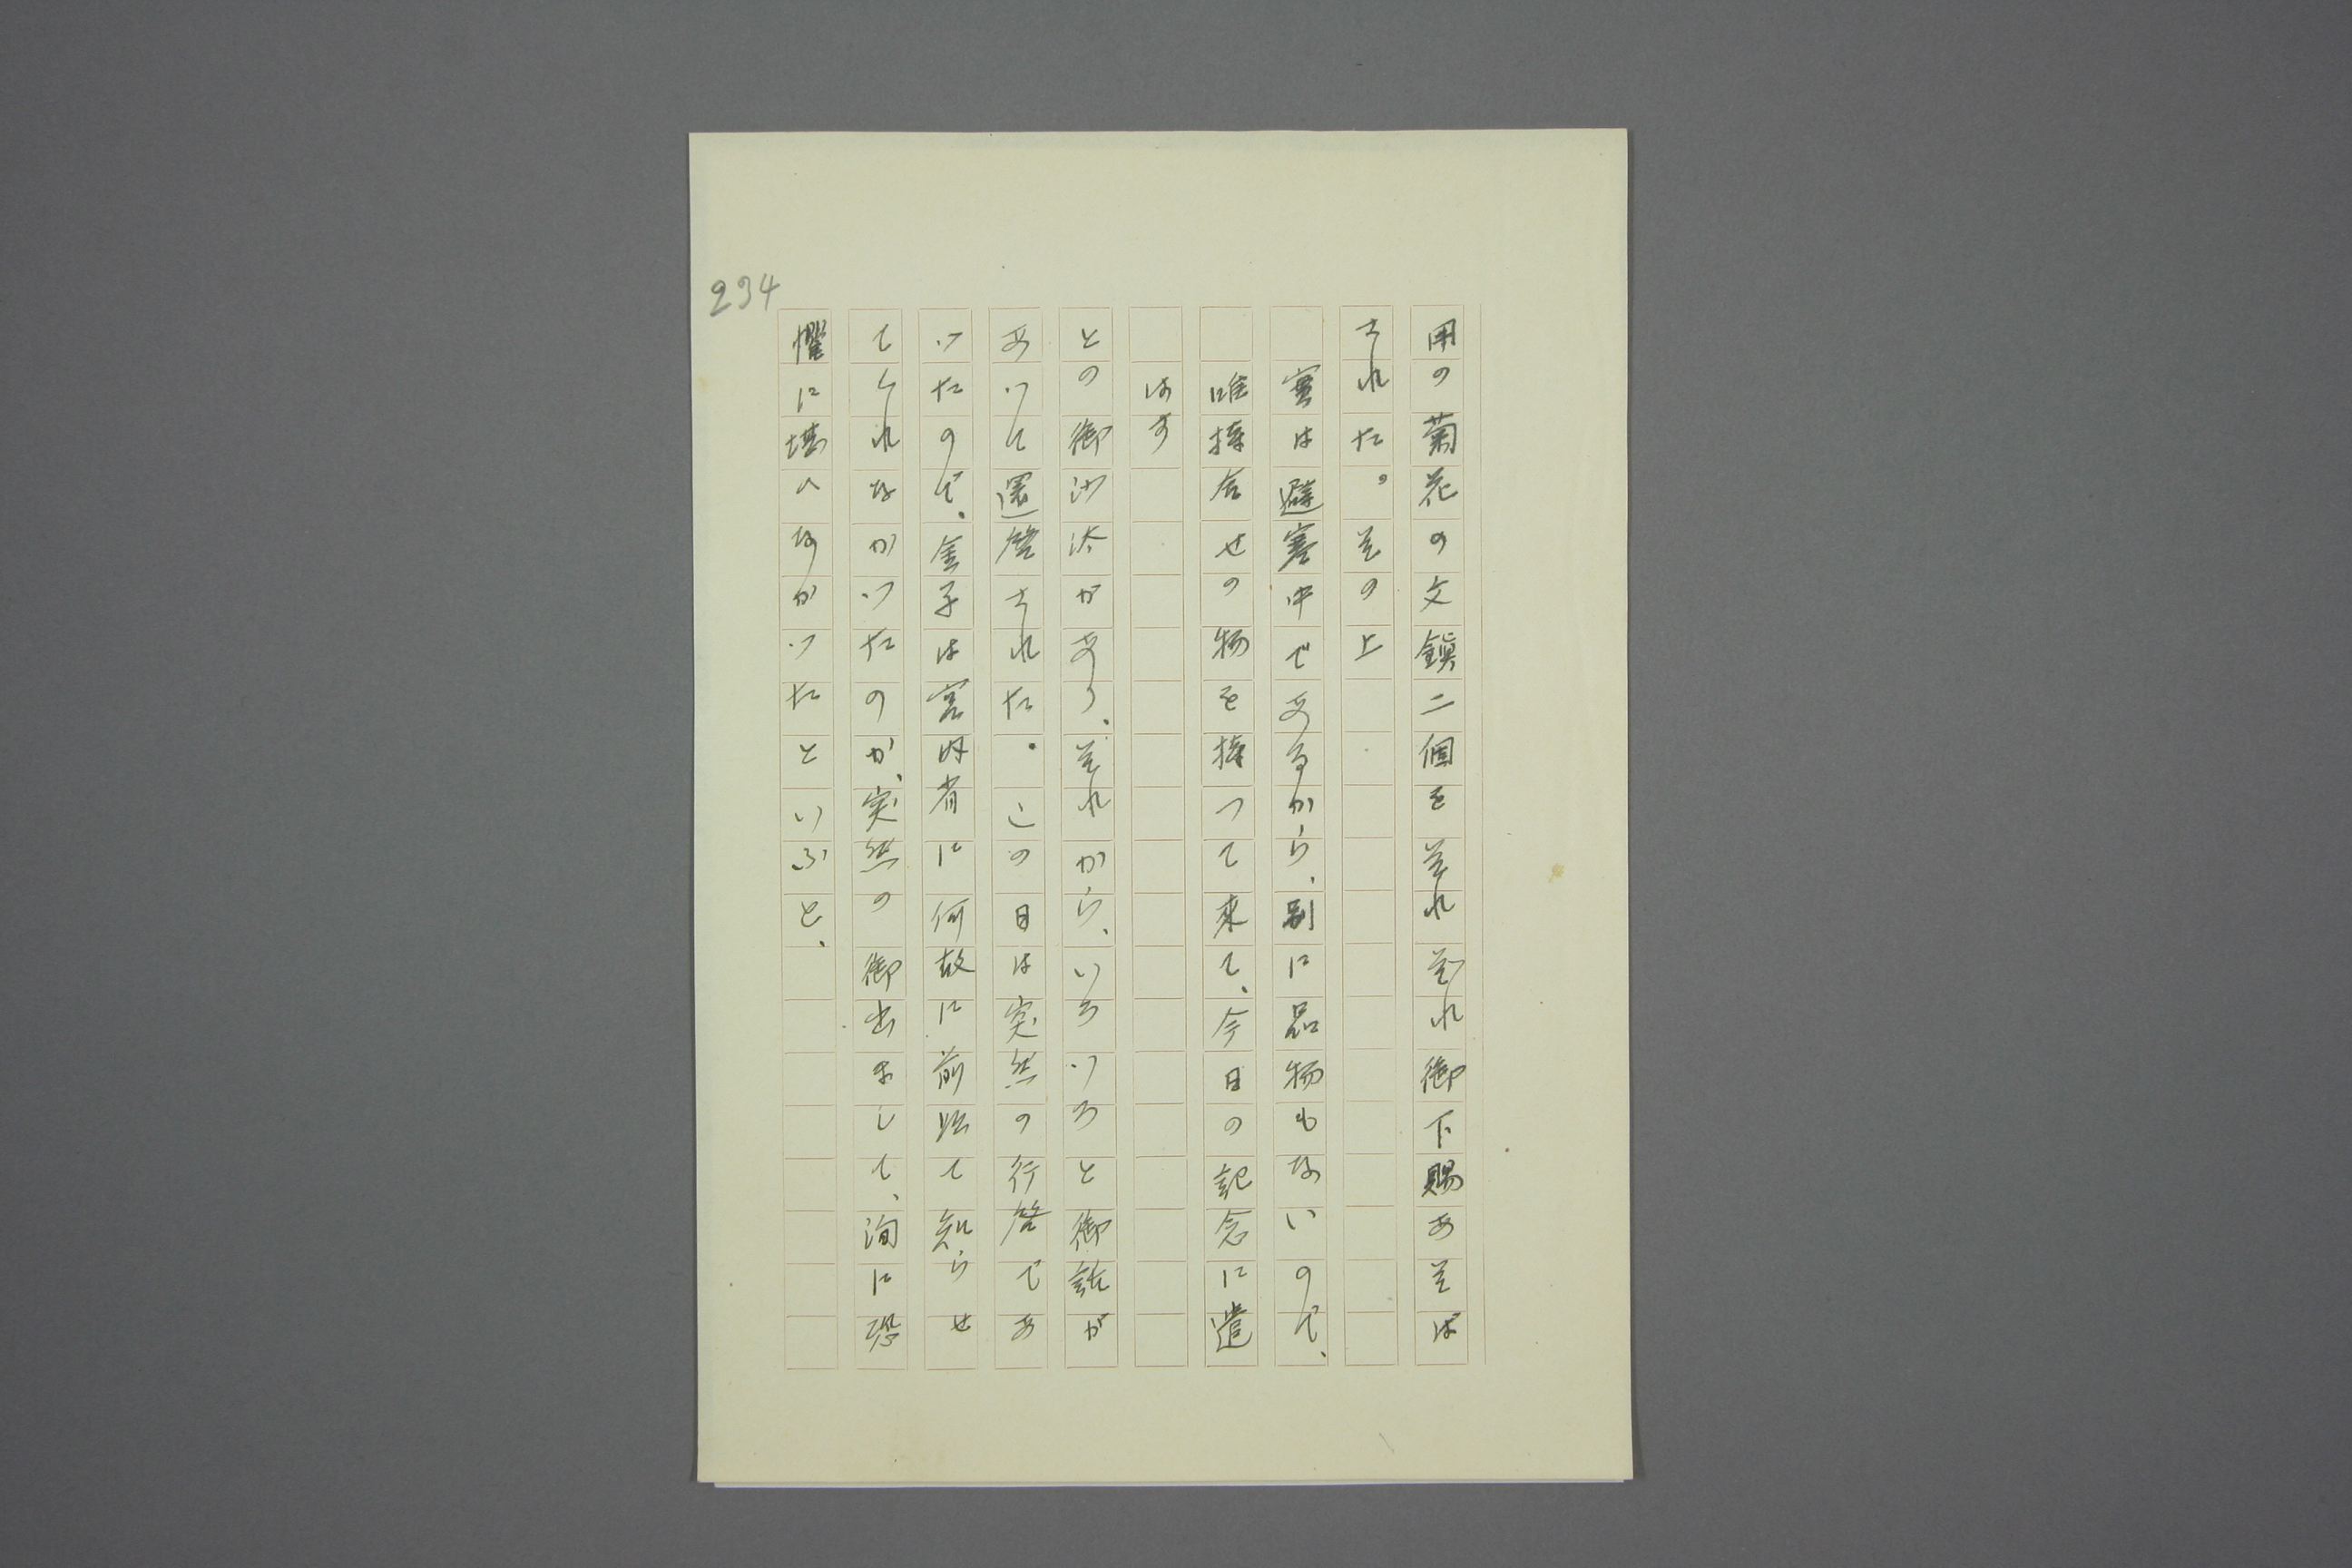 234
用の菊花の文鎮二個をそれぞれ御下賜あそば
された。その上
實は避寒中であるから、別に品物もないので、
唯持合せの物を持つて来て、今日の記念に遣
はす
との御沙汰があり、それから、いろいろと御話が
あつて還啓された。この日は突然の行啓であ
つたので、金子は宮内省に何故に前以て知らせ
てくれなかつたのか、突然の御出ましで、洵に恐
懼に堪へなかつたといふと、